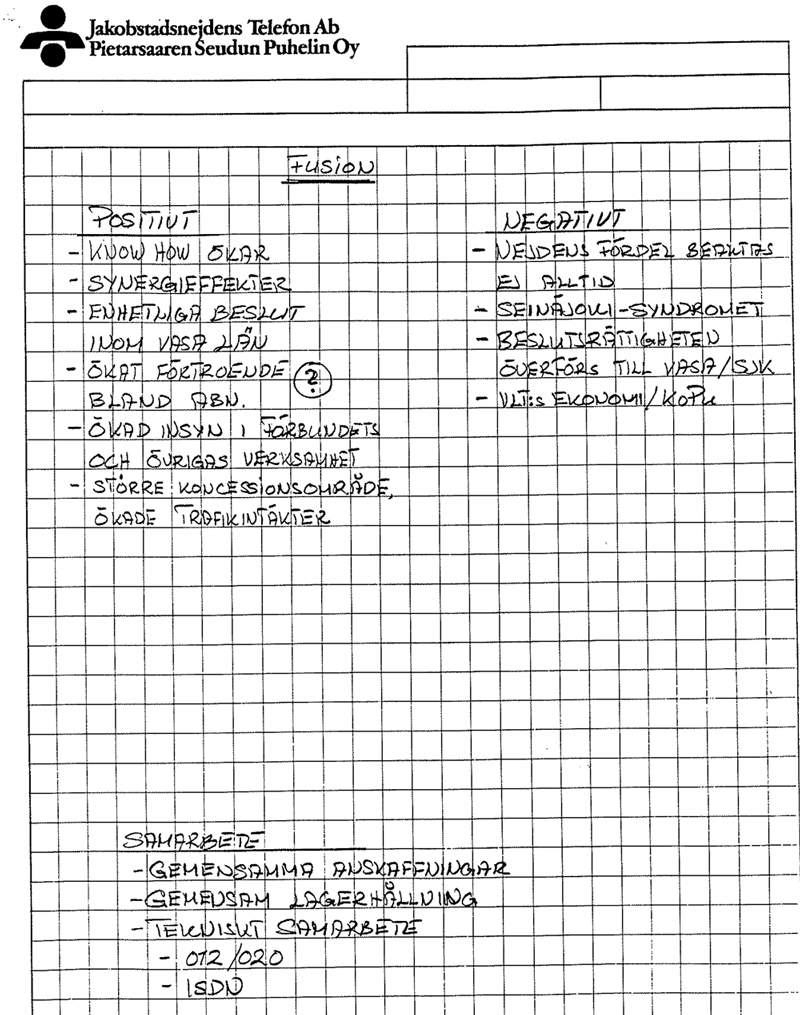 Jakobstadsnejdens Telefon Ab
Pietarsaaren Seudun Puhelin Oy
FUSION
POSITIVT
- KNOW HOW ÖKAR
- SYNERGIEFFEKTER
- ENHETLIGA BESLUT
INOM VASA LÄN
- ÖKAT FÖRTROENDE
BLAND ABN. ?
- ÖKAD INSYN I FÖRBUNDETS
OCH ÖVRIGAS VERKSAMHET
- STÖRRE KONCESSIONSOMRÅDE,
ÖKADE TRAFIKINTÄKTER
NEGATIVT
- NEJDENS FÖRDEL BEAKTAS
EJ ALLTID
- SEINÄJOKI-SYNDROMET
- BESLUTSRÄTTIGHETEN
ÖVERFÖRS TILL VASA/SJK
- VLT:S EKONOMI/KOPU
SAMARBETE
- GEMENSAMMA ANSKAFFNINGAR
- GEMENSAM LAGERHÅLLNING
- TEKNISKT SAMARBETE
- 072/020
- ISDN